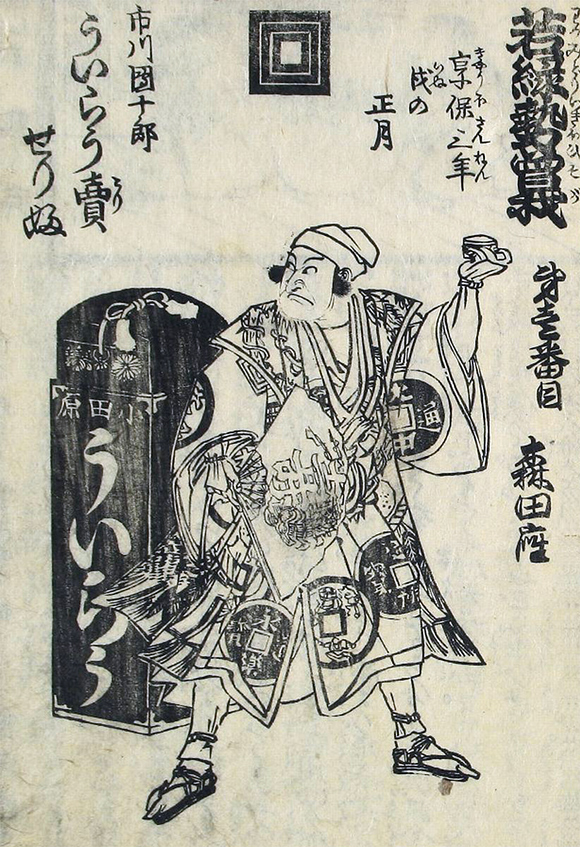 若緑勢曽我
わかみどりいきほひそが
第壱番目
森田座
享保三年
きやうほさんねん
戌の
いぬ
正月
市川團十郎
ういらう賣
うり
せりふ
小田原
ういらう